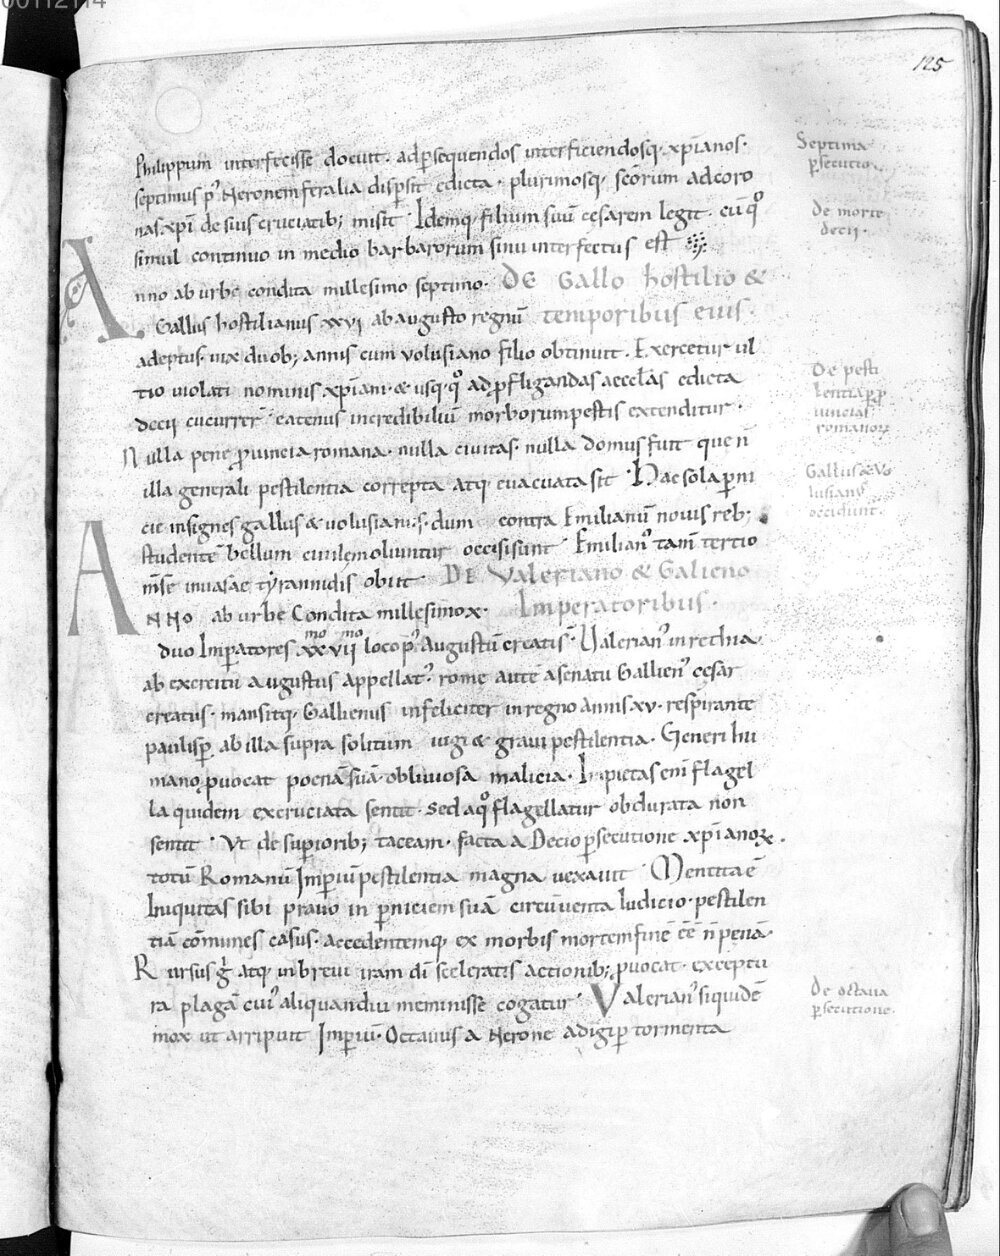 00112114
125
philippum interfecisse docuit· adp̄sequendos interficiendosq· xp̄ianos·
septimus p' Neronem feralia disp̄sit edicta· plurimosq· sc̄orum ad coro
nas xp̄i de suis cruciatib; misit· Idemq· filium suū cęsarem legit· cū q°
simul continuo in medio barbarorum sinu interfectus est
Anno ab urbe condita millesimo septimo· DE Gallo hostilio &
Gallus hostilianus xxvi ab augusto regnū temporibus eius·
adeptus· uix duob; annis cum uolusiano filio obtinuit· Exercetur ul
tio uiolati nominis xp̄iani· & usq· q° ad p̄fligandas aeccl̄as edicta
decii cucurrer̄ eatenus incredibiliū morborum pestis extenditur·
Nulla pene p̄uincia romana· nulla ciuitas· nulla domus fuit que n̄
illa generali pestilentia correpta atq· euacuata sit· Hac sola p̄ni
cie insignes gallus & uolusianus· dum contra Emilianū nouis reb;
studentē bellum ciuile moliuntur occisi sunt· Emilian' tam̄ tertio
m̄se inuasae tyrannidis obiit· DE Valeriano & Galieno
ANNO ab urbe Condita millesimo x· Imperatoribus·
duo Imp̄atores xx mo vii mo loco p' Augustū creati s̄· Ualerian' in rethia
ab exercitu augustus appellat'· rome autē a senatu Gallien' cęsar
creatus· mansitq· Gallienus infeliciter in regno annis xv· respirante
paulisp̄ ab illa supra solitum iugi & graui pestilentia· Generi hu
mano p̄uocat poenā suā obliuiosa malicia· Impietas eni flagel
la quidem excruciata sentit· sed a q° flagellatur obdurata non
sentit· Ut de sup̄iorib; taceam· facta a Decio p̄secutione xp̄ianoꝝ·
totū Romanū Imp̄iū pestilentia magna uexauit· Mentita ē
Iniquitas sibi prauo in p̄niciem suā circūuenta Iudicio· pestilen
tiā com̄unes casus· accedentemq· ex morbis mortem finē eē n̄ pęnā·
Rursus ḡ atq· in breui iram dī sceleratis actionib; p̄uocat· exceptu
ra plagā cui' aliquandiu meminisse cogatur· Valerian' siquidē
mox ut arripuit Imp̄iū· Octauus a Nerone adigi p̄ tormenta
Septima
p̄secutio·
De morte
decii·
De pesti
lentia p̄ p̄
uincias
romanoꝝ
Gallus & Uo
lusian'
occidunt̄·
De octaua
p̄secutione·